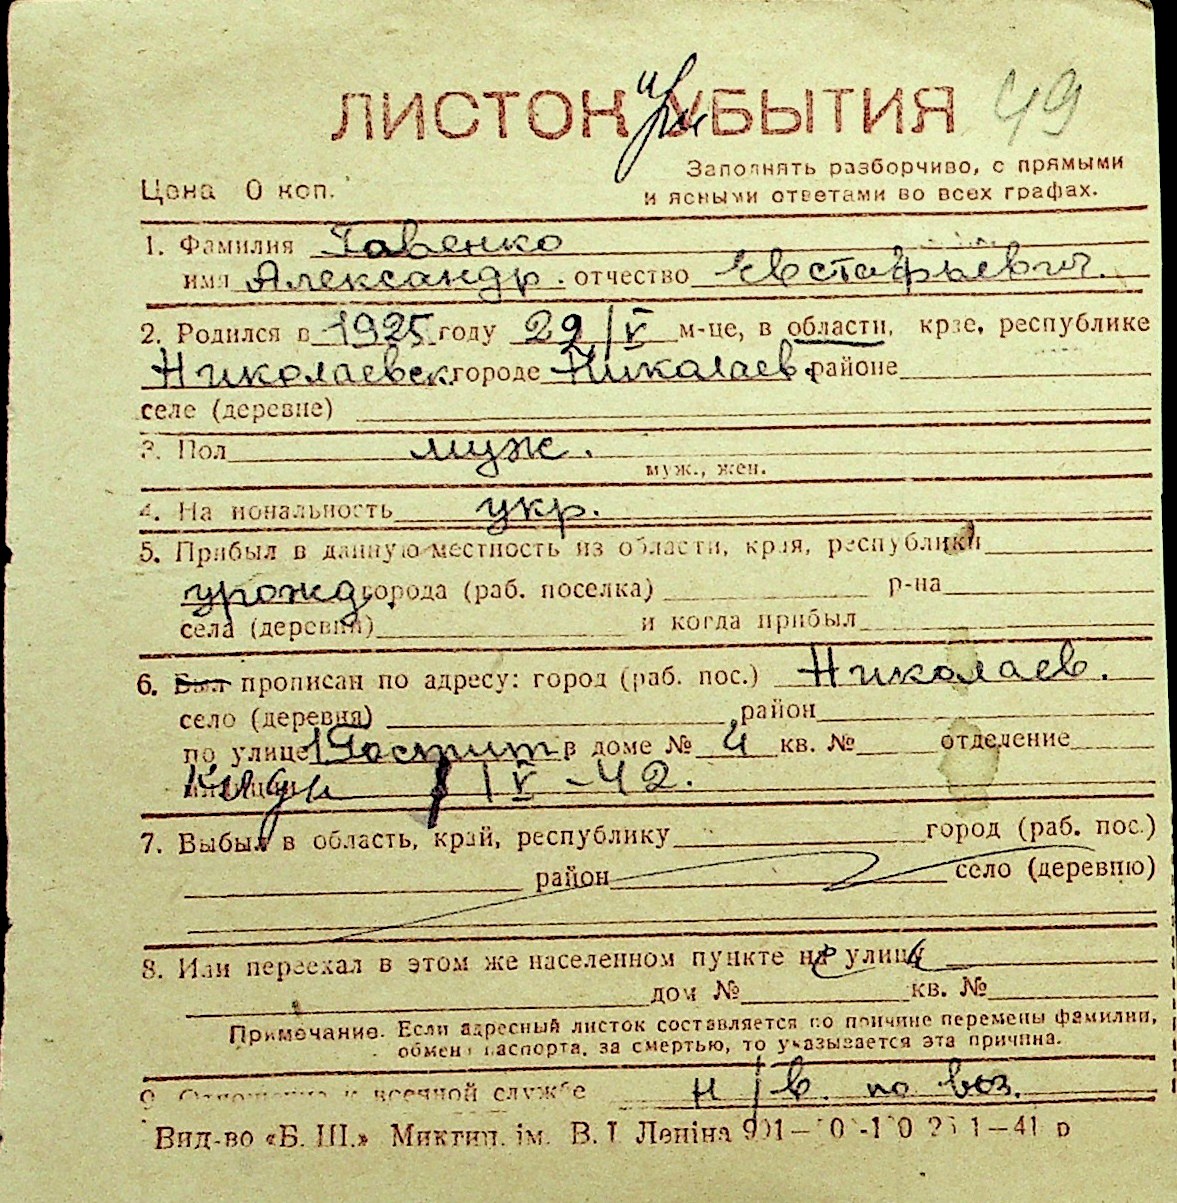 ЛИСТОК УБЫТИЯ 49
при
Заполнять разборчиво, с прямыми
Цена 0 коп. и ясными ответами во всех графах.
1. Фамилия Гавенко
имя Александр. отчество Евстафьевич.
2. Родился в 1925 году 29/V м-це, в области, крае, республике
Николаевск. городе Николаев. районе
селе (деревне)
3. Пол муж.
муж., жен.
4. Национальность укр.
5. Прибыл в данную местность из области, края, республики
урожд. города (раб. поселка) р-на
села (деревни) и когда прибыл
6. Был прописан по адресу: город (раб. пос.) Николаев.
село (деревня) район
по улице в доме № 4 кв. № отделение
милиции /V-42.
7. Выбыл в область, край, республику город (раб. пос.)
район село (деревню)
8. Или переехал в этом же населенном пункте на улицу
дом № кв. №
Примечание. Если адресный листок составляется по причине перемены фамилии,
обмена паспорта, за смертью, то указывается эта причина.
9. Отношение к военной службе н/в. по воз.
Вид-во «Б. Ш.» Микт ім. В. І. Леніна